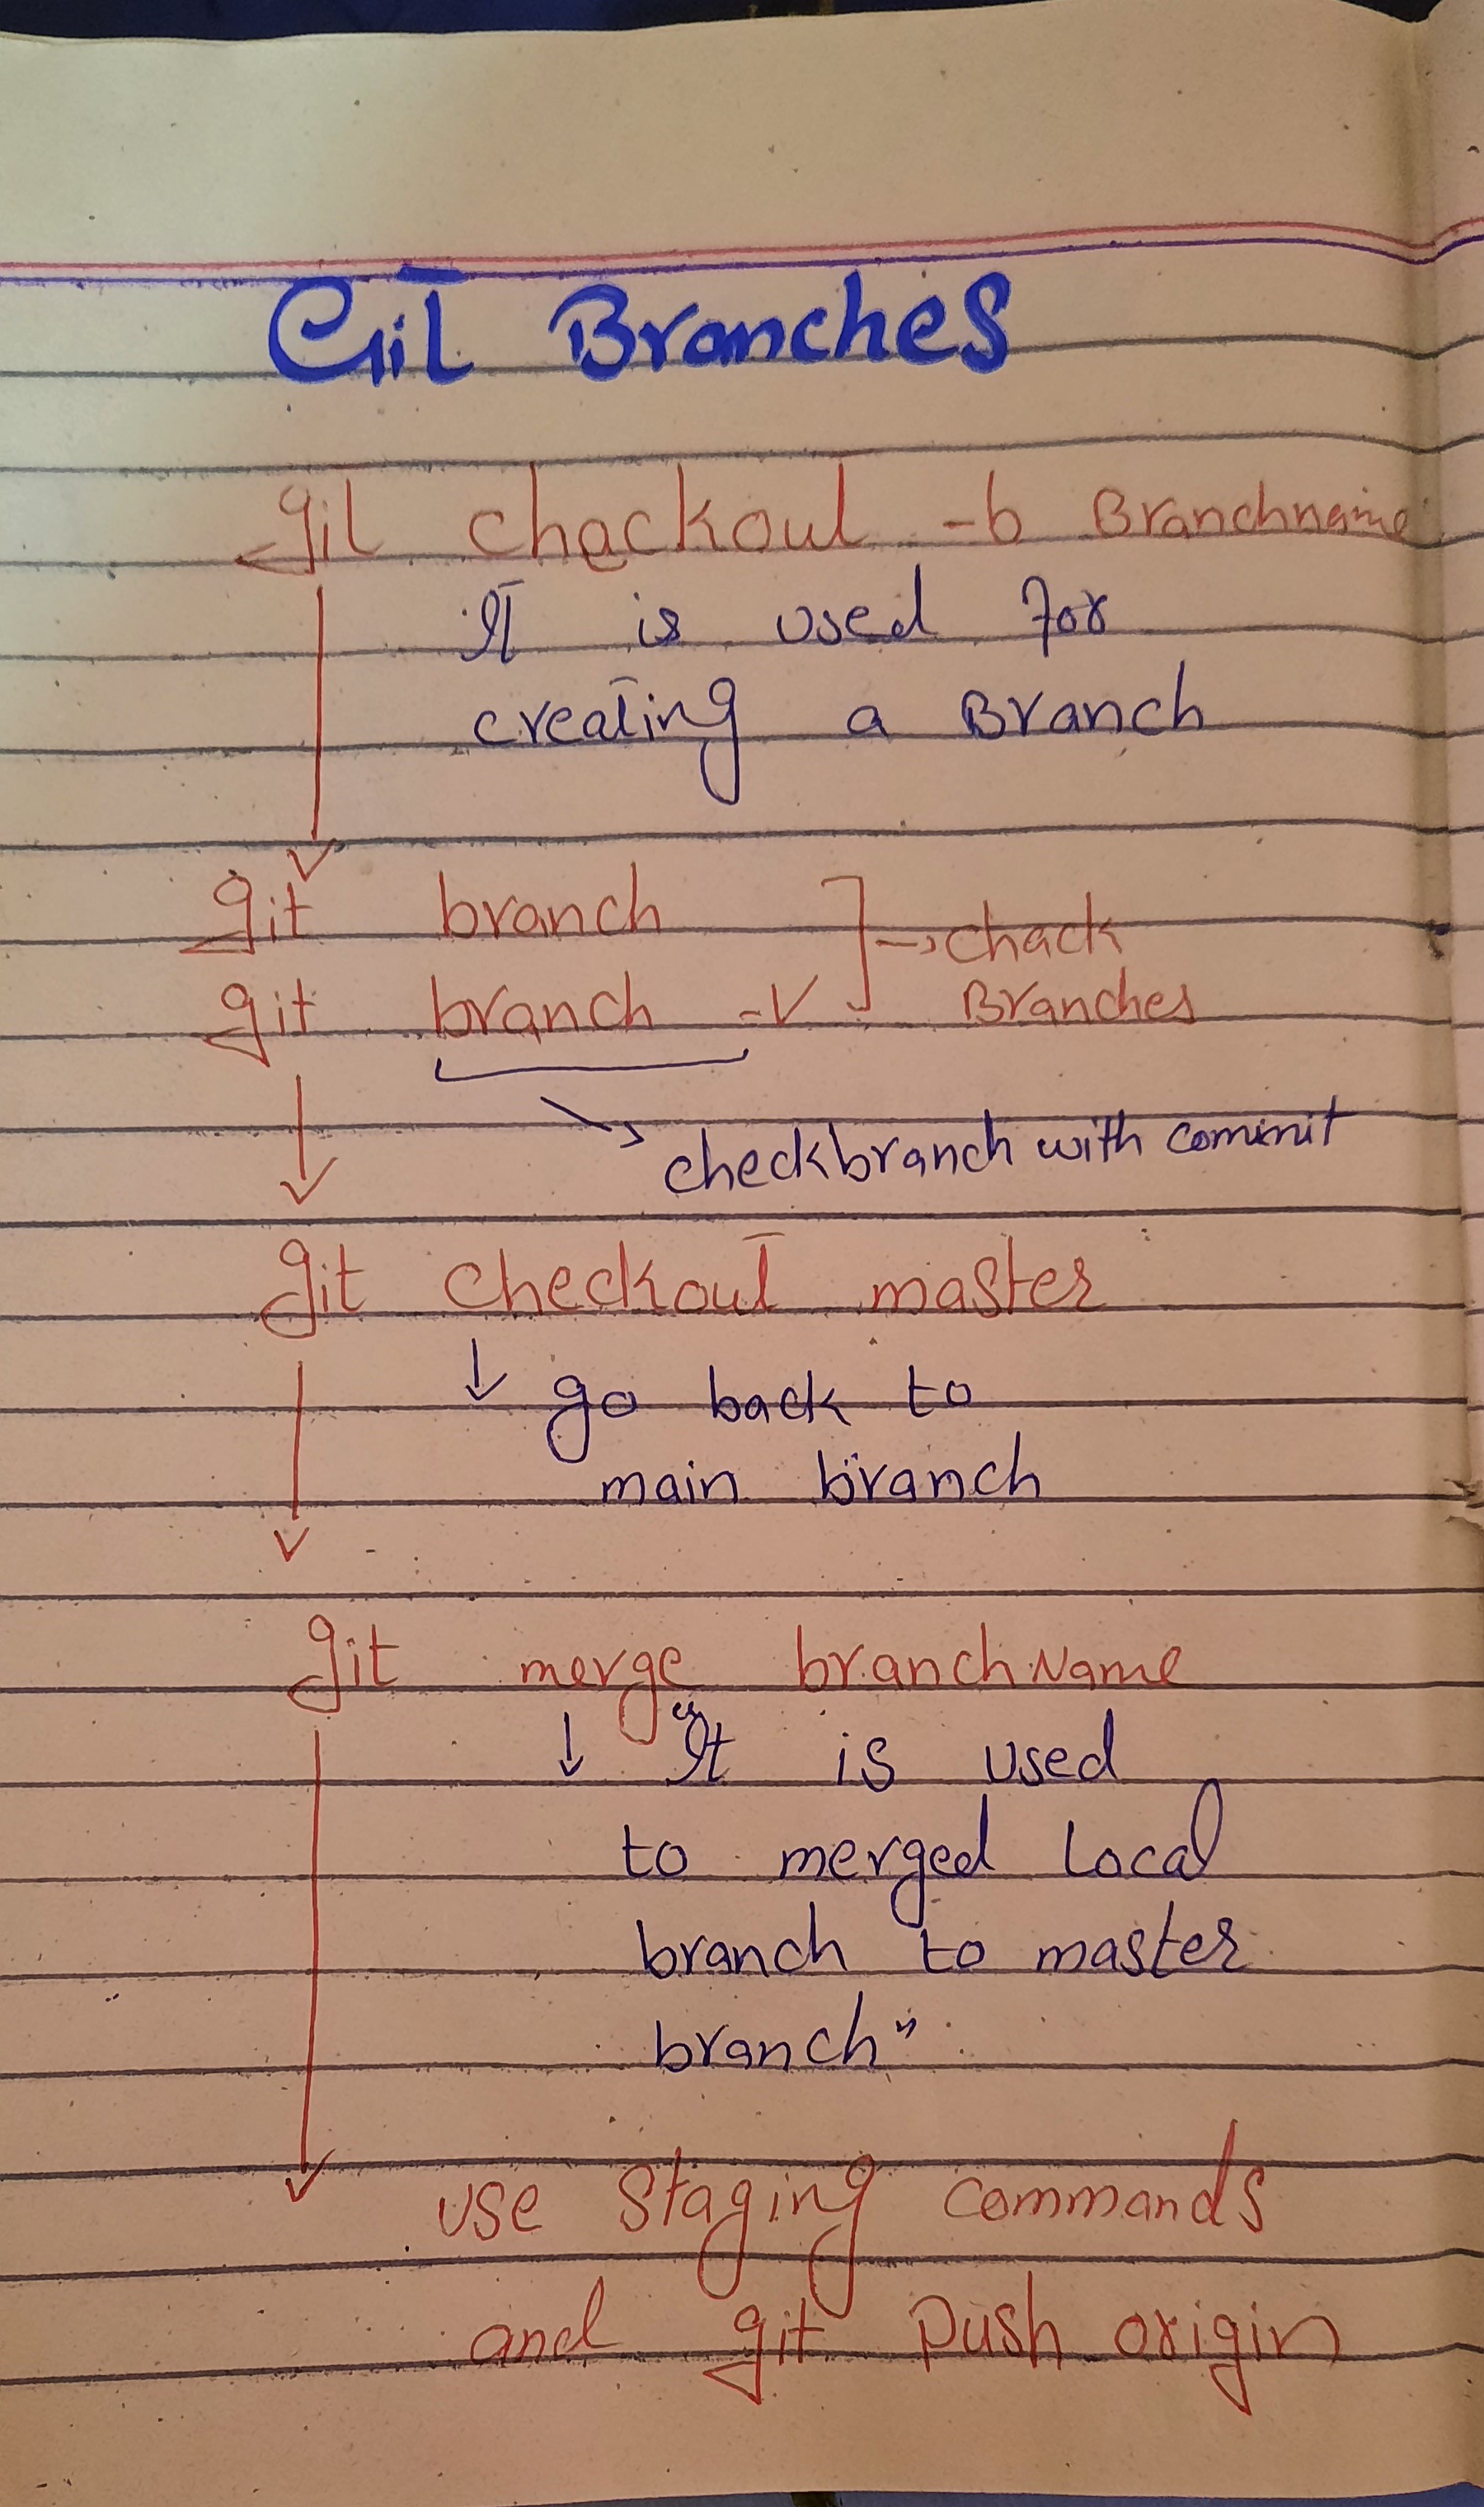 Git Branches
git chackout -b Branchname
It is used for
creating a Branch
git branch
→ chack
git branch -v
Branches
checkbranch with commit
git checkout master
↓ go back to
main branch
git merge branchName
↓ "It is used
to merged Local
branch to master
branch"
use staging commands
and git push origin